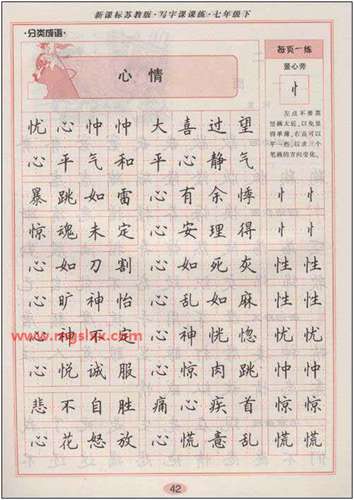 新课标苏教版·写字课课练·七年级下
·分类成语·
心情
每页一练
竖心旁
忄
左点不要离
竖画太远，以免显
得单薄，右点可以
平一些，以求三个
笔画的方向变化。
忧心忡忡 大喜过望
心平气和 心静气
暴跳如雷 心有余悸 忄忄
惊魂未定 心安理得 忄忄
心如刀割 心如死灰 性性
心旷神怡 心乱如麻 性性
心神不定 心神恍惚 忧忧
心悦诚服 心惊肉跳 忡忡
悲不自胜 痛心疾首 慌慌
心花怒放 心慌意乱 慌慌
www.mgslzx.com
42